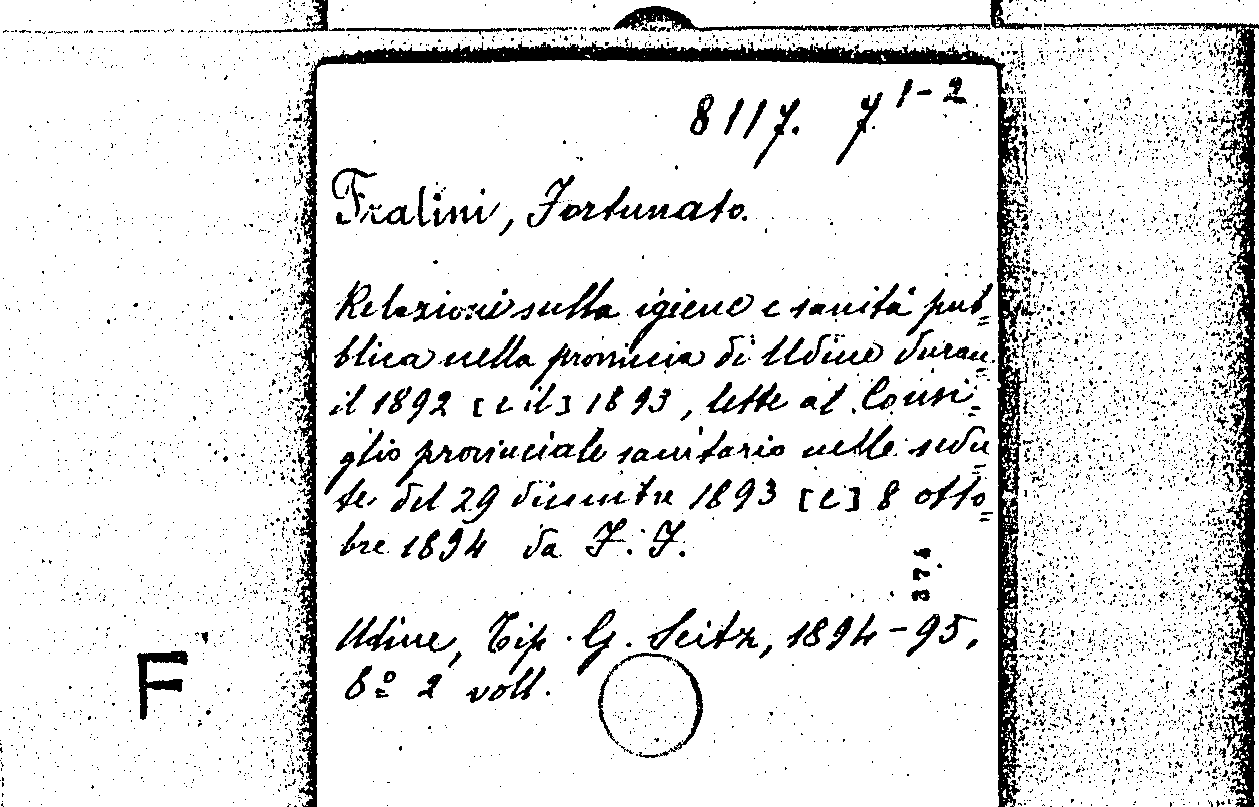 8117. 7 1-2
Fralini, Fortunato.
Relazioni sulla igiene e sanità pub=
blica nella provincia di Udine duran=
il 1892 [e il] 1893, lette al Consi=
glio provinciale sanitario nelle sedu=
te del 29 dicembre 1893 [e] 8 otto=
bre 1894 da F. F.
376
Udine, Tip. G. Seitz, 1894-95,
8º 2 voll.
F